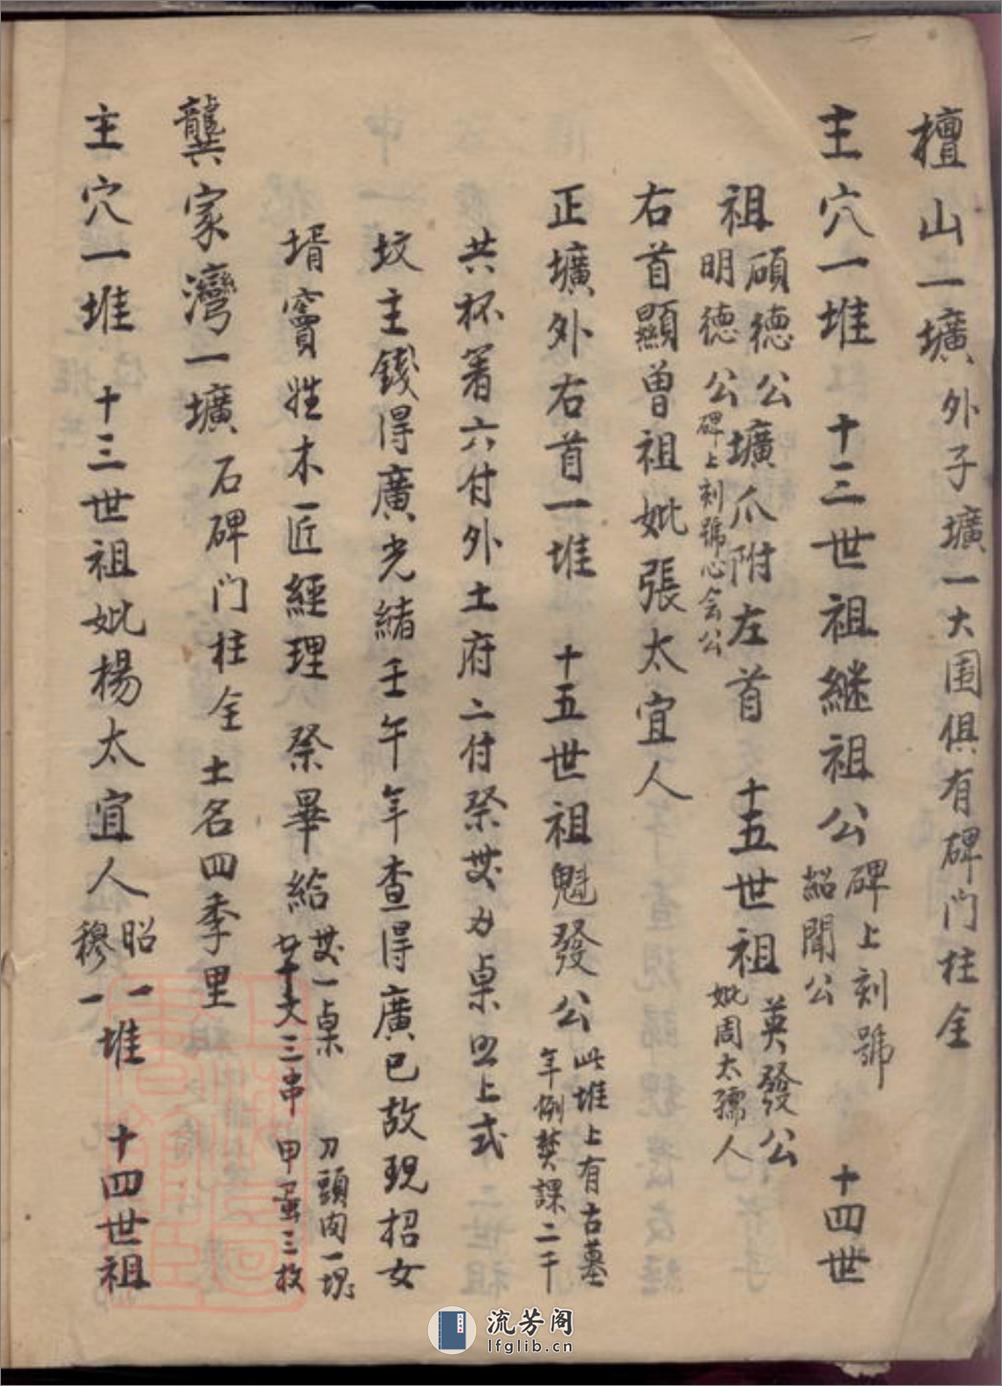 檀山一壙外子壙一大围俱有碑门柱全
主穴一堆 十三世祖継祖公碑上刻號紹聞公 十四世
祖碩德公明德公碑上刻號心会公壙爪附左首 十五世祖英發公妣周太孺人
右首顯曾祖妣張太宜人
正壙外右首一堆 十五世祖魁發公此堆上有古墓年例焚課二千
共杯箸六付外土府二付祭菜力桌照上式
坟主錢得廣光緒壬午年查得廣已故現招女
壻竇姓木匠經理 祭畢給菜一桌廿文三串 刀頭肉一塊甲蛋三枚
龔家灣一壙 石碑门柱全 土名四季里
主穴一堆 十三世祖妣楊太宜人昭一穆一堆 十四世祖
流芳阁
lfglib.cn